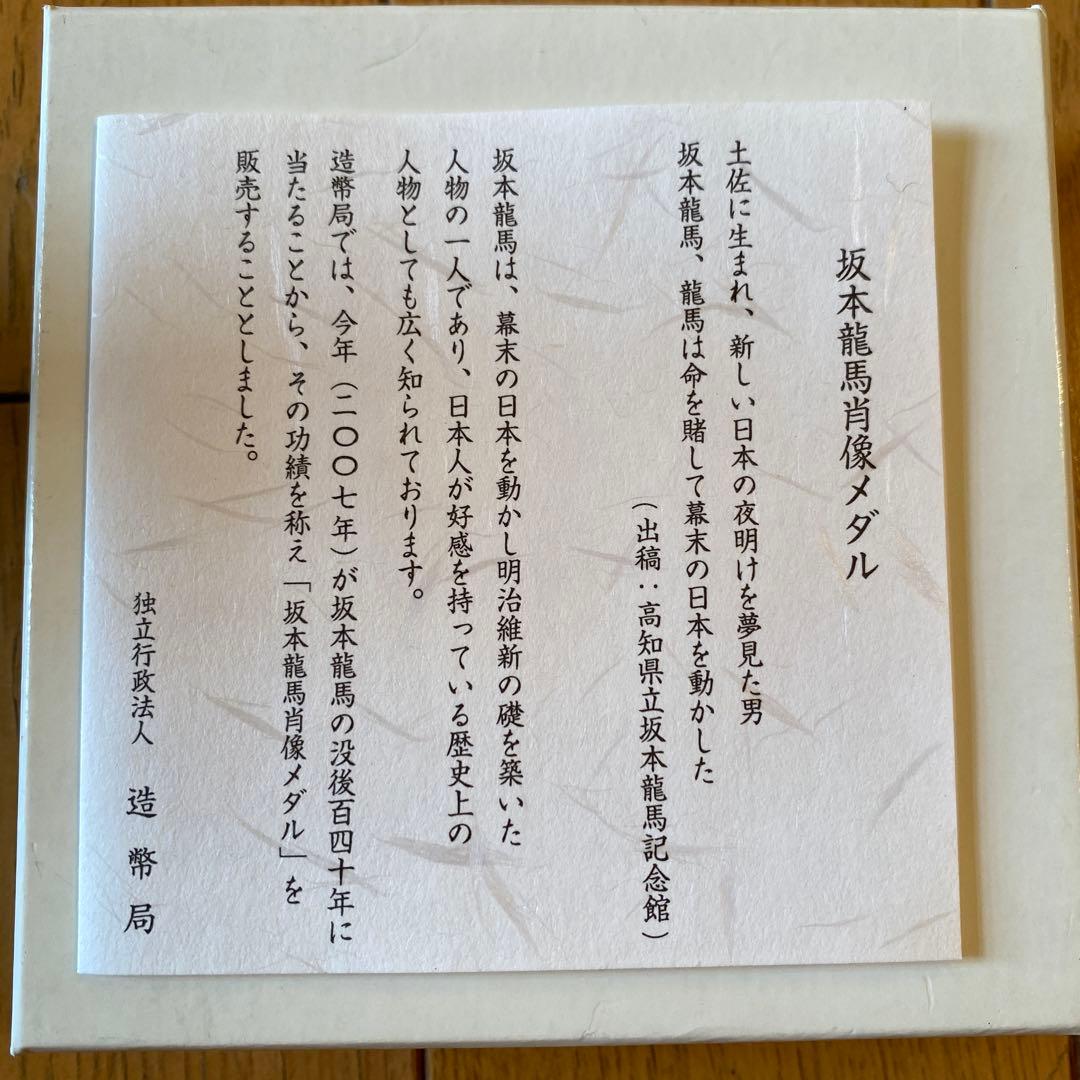 坂本龍馬肖像メダル
土佐に生まれ、新しい日本の夜明けを夢見た男
坂本龍馬、龍馬は命を賭して幕末の日本を動かした
（出稿：高知県立坂本龍馬記念館）
坂本龍馬は、幕末の日本を動かし明治維新の礎を築いた
人物の一人であり、日本人が好感を持っている歴史上の
人物としても広く知られております。
造幣局では、今年（二〇〇七年）が坂本龍馬の没後百四十年に
当たることから、その功績を称え「坂本龍馬肖像メダル」を
販売することとしました。
独立行政法人 造幣局